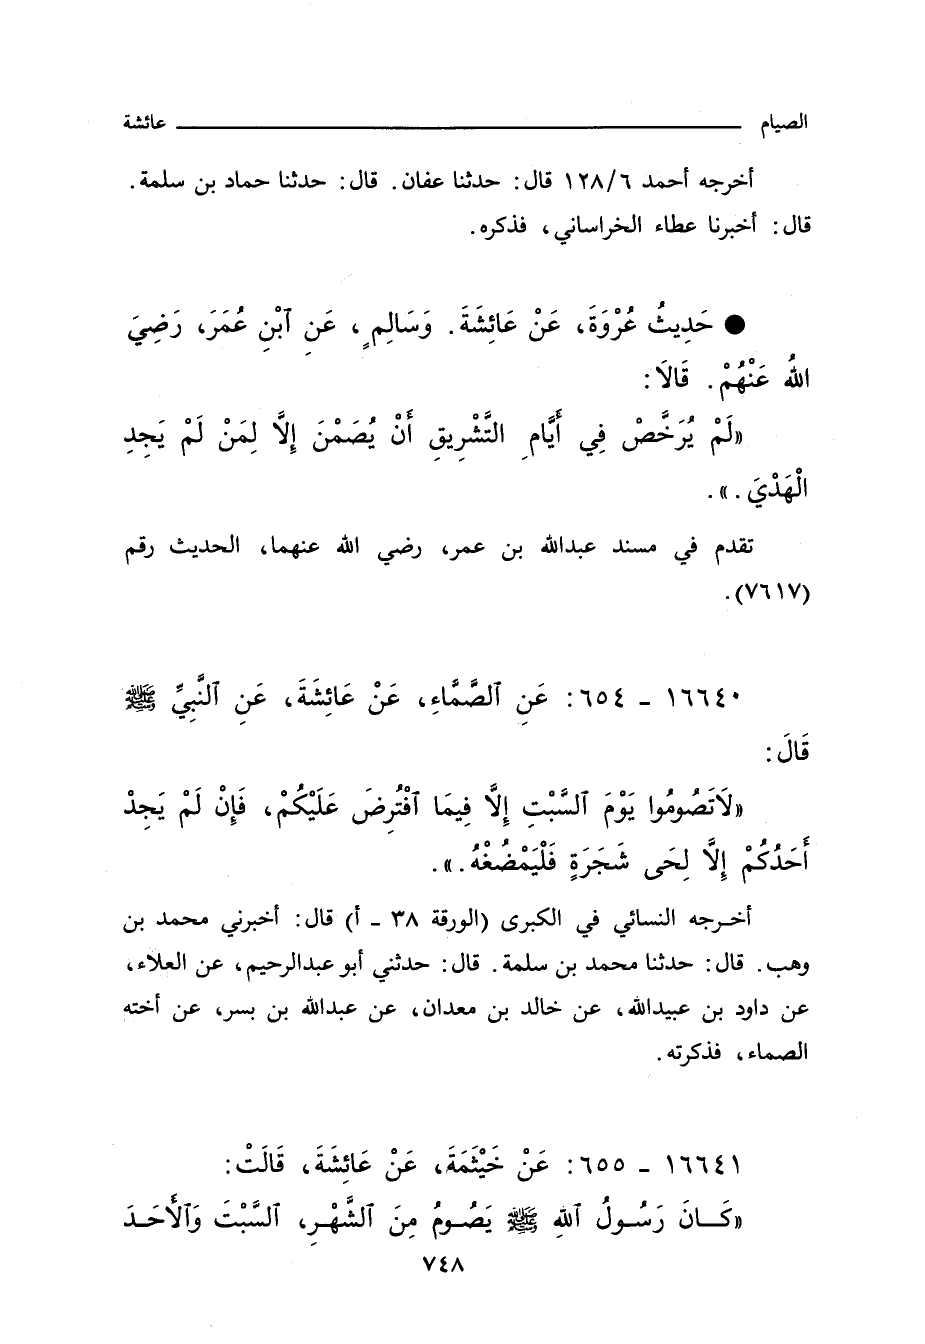 الصيام ــــــــــــــــــــــــــــــــــــــــ عائشة
أخرجه أحمد ١٢٨/٦ قال: حدثنا عفان. قال: حدثنا حماد بن سلمة.
قال: أخبرنا عطاء الخراساني، فذكره.
● حَدِيثُ عُرْوَةَ، عَنْ عَائِشَةَ. وَسَالِمٍ، عَنِ ٱبْنِ عُمَرَ، رَضِيَ
اللهُ عَنْهُمْ. قَالَا:
«لَمْ يُرَخَّصْ فِي أَيَّامِ التَّشْرِيقِ أَنْ يُصَمْنَ إِلَّا لِمَنْ لَمْ يَجِدِ
الْهَدْيَ.».
تقدم في مسند عبدالله بن عمر، رضي الله عنهما، الحديث رقم
(٧٦١٧).
١٦٦٤٠ - ٦٥٤: عَنِ ٱلصَّمَّاءِ، عَنْ عَائِشَةَ، عَنِ ٱلنَّبِيِّ ﷺ
قَالَ:
«لَاتَصُومُوا يَوْمَ ٱلسَّبْتِ إِلَّا فِيمَا ٱفْتُرِضَ عَلَيْكُمْ، فَإِنْ لَمْ يَجِدْ
أَحَدُكُمْ إِلَّا لِحَى شَجَرَةٍ فَلْيَمْضُغْهُ.».
أخـرجه النسائي في الكبرى (الورقة ٣٨ - أ) قال: أخبرني محمد بن
وهب. قال: حدثنا محمد بن سلمة. قال: حدثني أبو عبدالرحيم، عن العلاء،
عن داود بن عبيدالله، عن خالد بن معدان، عن عبدالله بن بسر، عن أخته
الصماء، فذكرته.
١٦٦٤١ - ٦٥٥: عَنْ خَيْثَمَةَ، عَنْ عَائِشَةَ، قَالَتْ:
«كَـانَ رَسُولُ ٱللهِ ﷺ يَصُـومُ مِنَ ٱلشَّهْـرِ، ٱلسَّبْتَ وَٱلْأَحَـدَ
٧٤٨